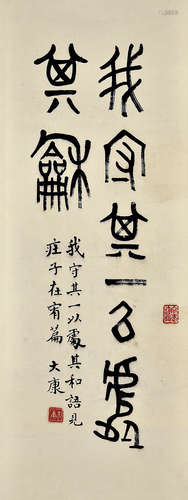 我守其一以處
其龢
我守其一以處其和語見
莊子在宥篇 大康